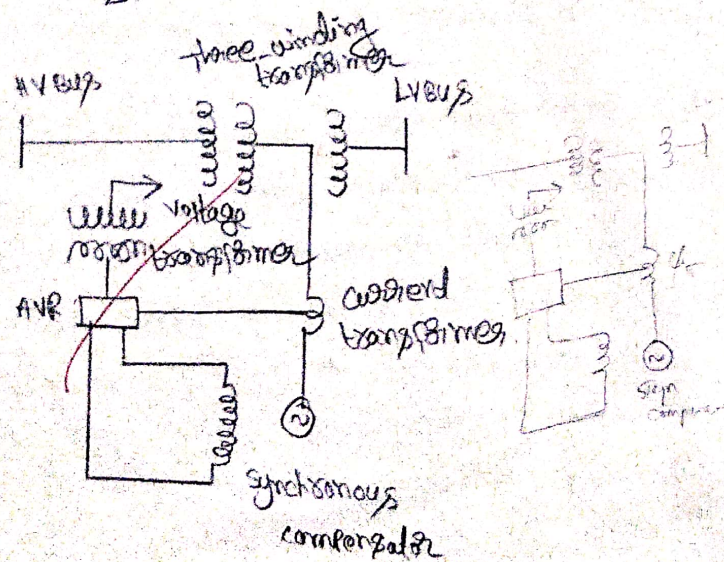 Three-winding
transformer
HV Bus
LV Bus
Voltage
transformer
AVR
current
transformer
Synchronous
compensator